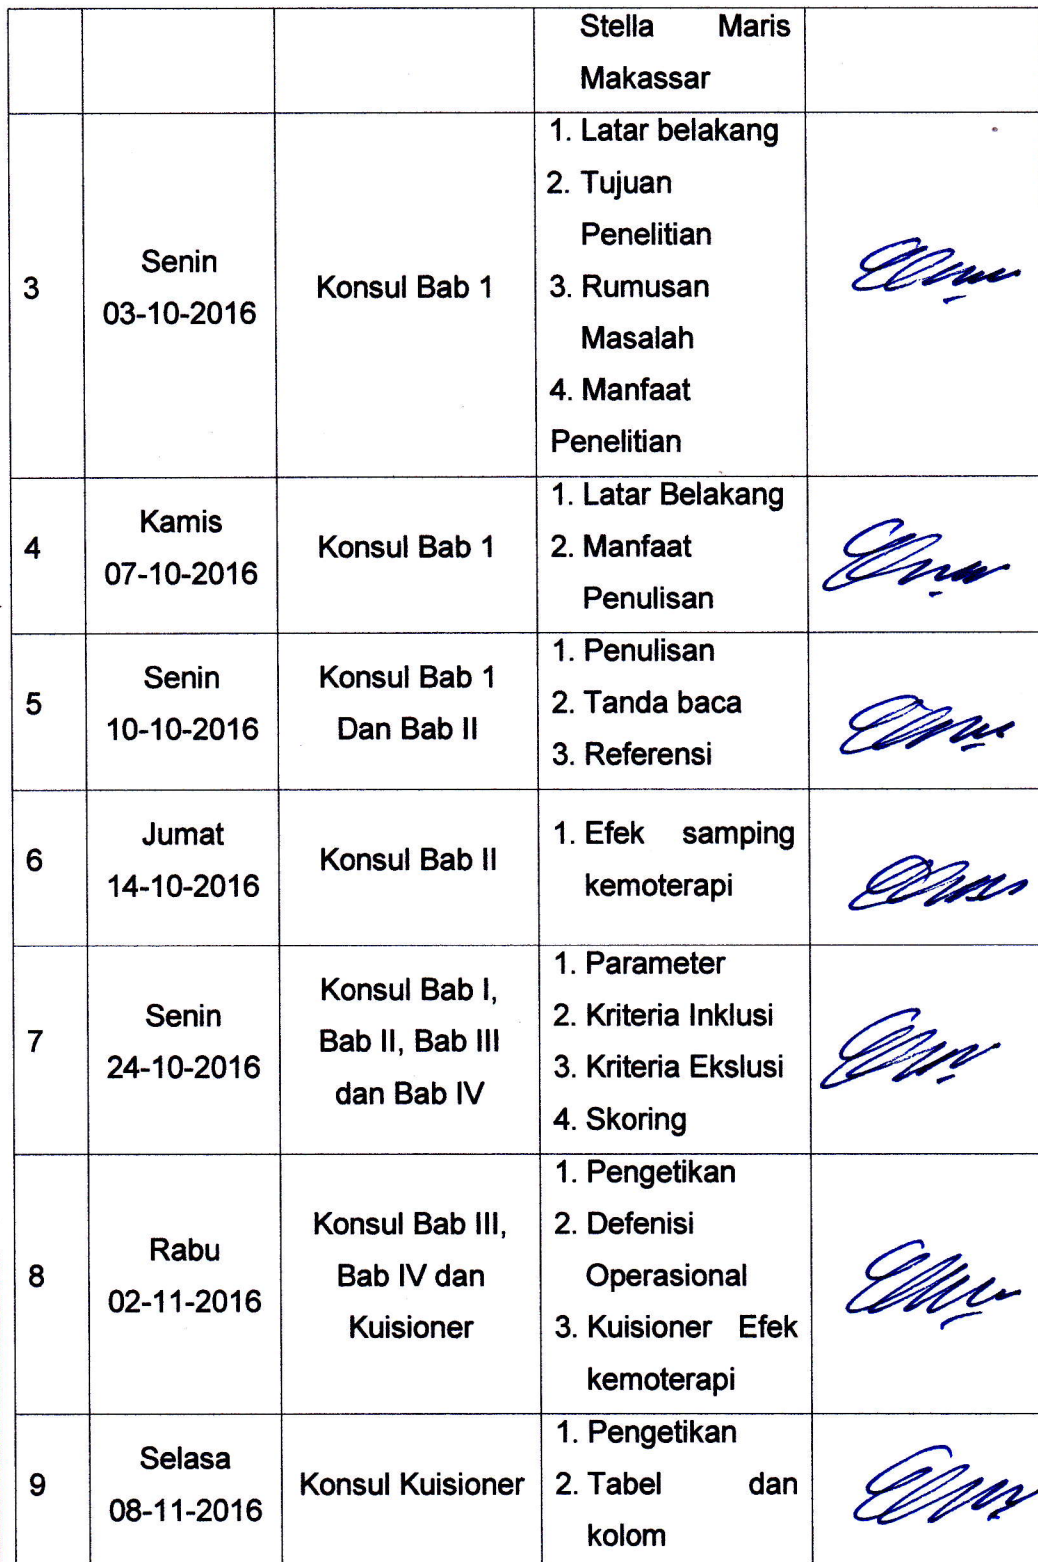 Stella Maris
Makassar
3
Senin
03-10-2016
Konsul Bab 1
1. Latar belakang
2. Tujuan
Penelitian
3. Rumusan
Masalah
4. Manfaat
Penelitian
4
Kamis
07-10-2016
Konsul Bab 1
1. Latar Belakang
2. Manfaat
Penulisan
5
Senin
10-10-2016
Konsul Bab 1
Dan Bab II
1. Penulisan
2. Tanda baca
3. Referensi
6
Jumat
14-10-2016
Konsul Bab II
1. Efek samping
kemoterapi
7
Senin
24-10-2016
Konsul Bab I,
Bab II, Bab III
dan Bab IV
1. Parameter
2. Kriteria Inklusi
3. Kriteria Ekslusi
4. Skoring
8
Rabu
02-11-2016
Konsul Bab III,
Bab IV dan
Kuisioner
1. Pengetikan
2. Defenisi
Operasional
3. Kuisioner Efek
kemoterapi
9
Selasa
08-11-2016
Konsul Kuisioner
1. Pengetikan
2. Tabel dan
kolom